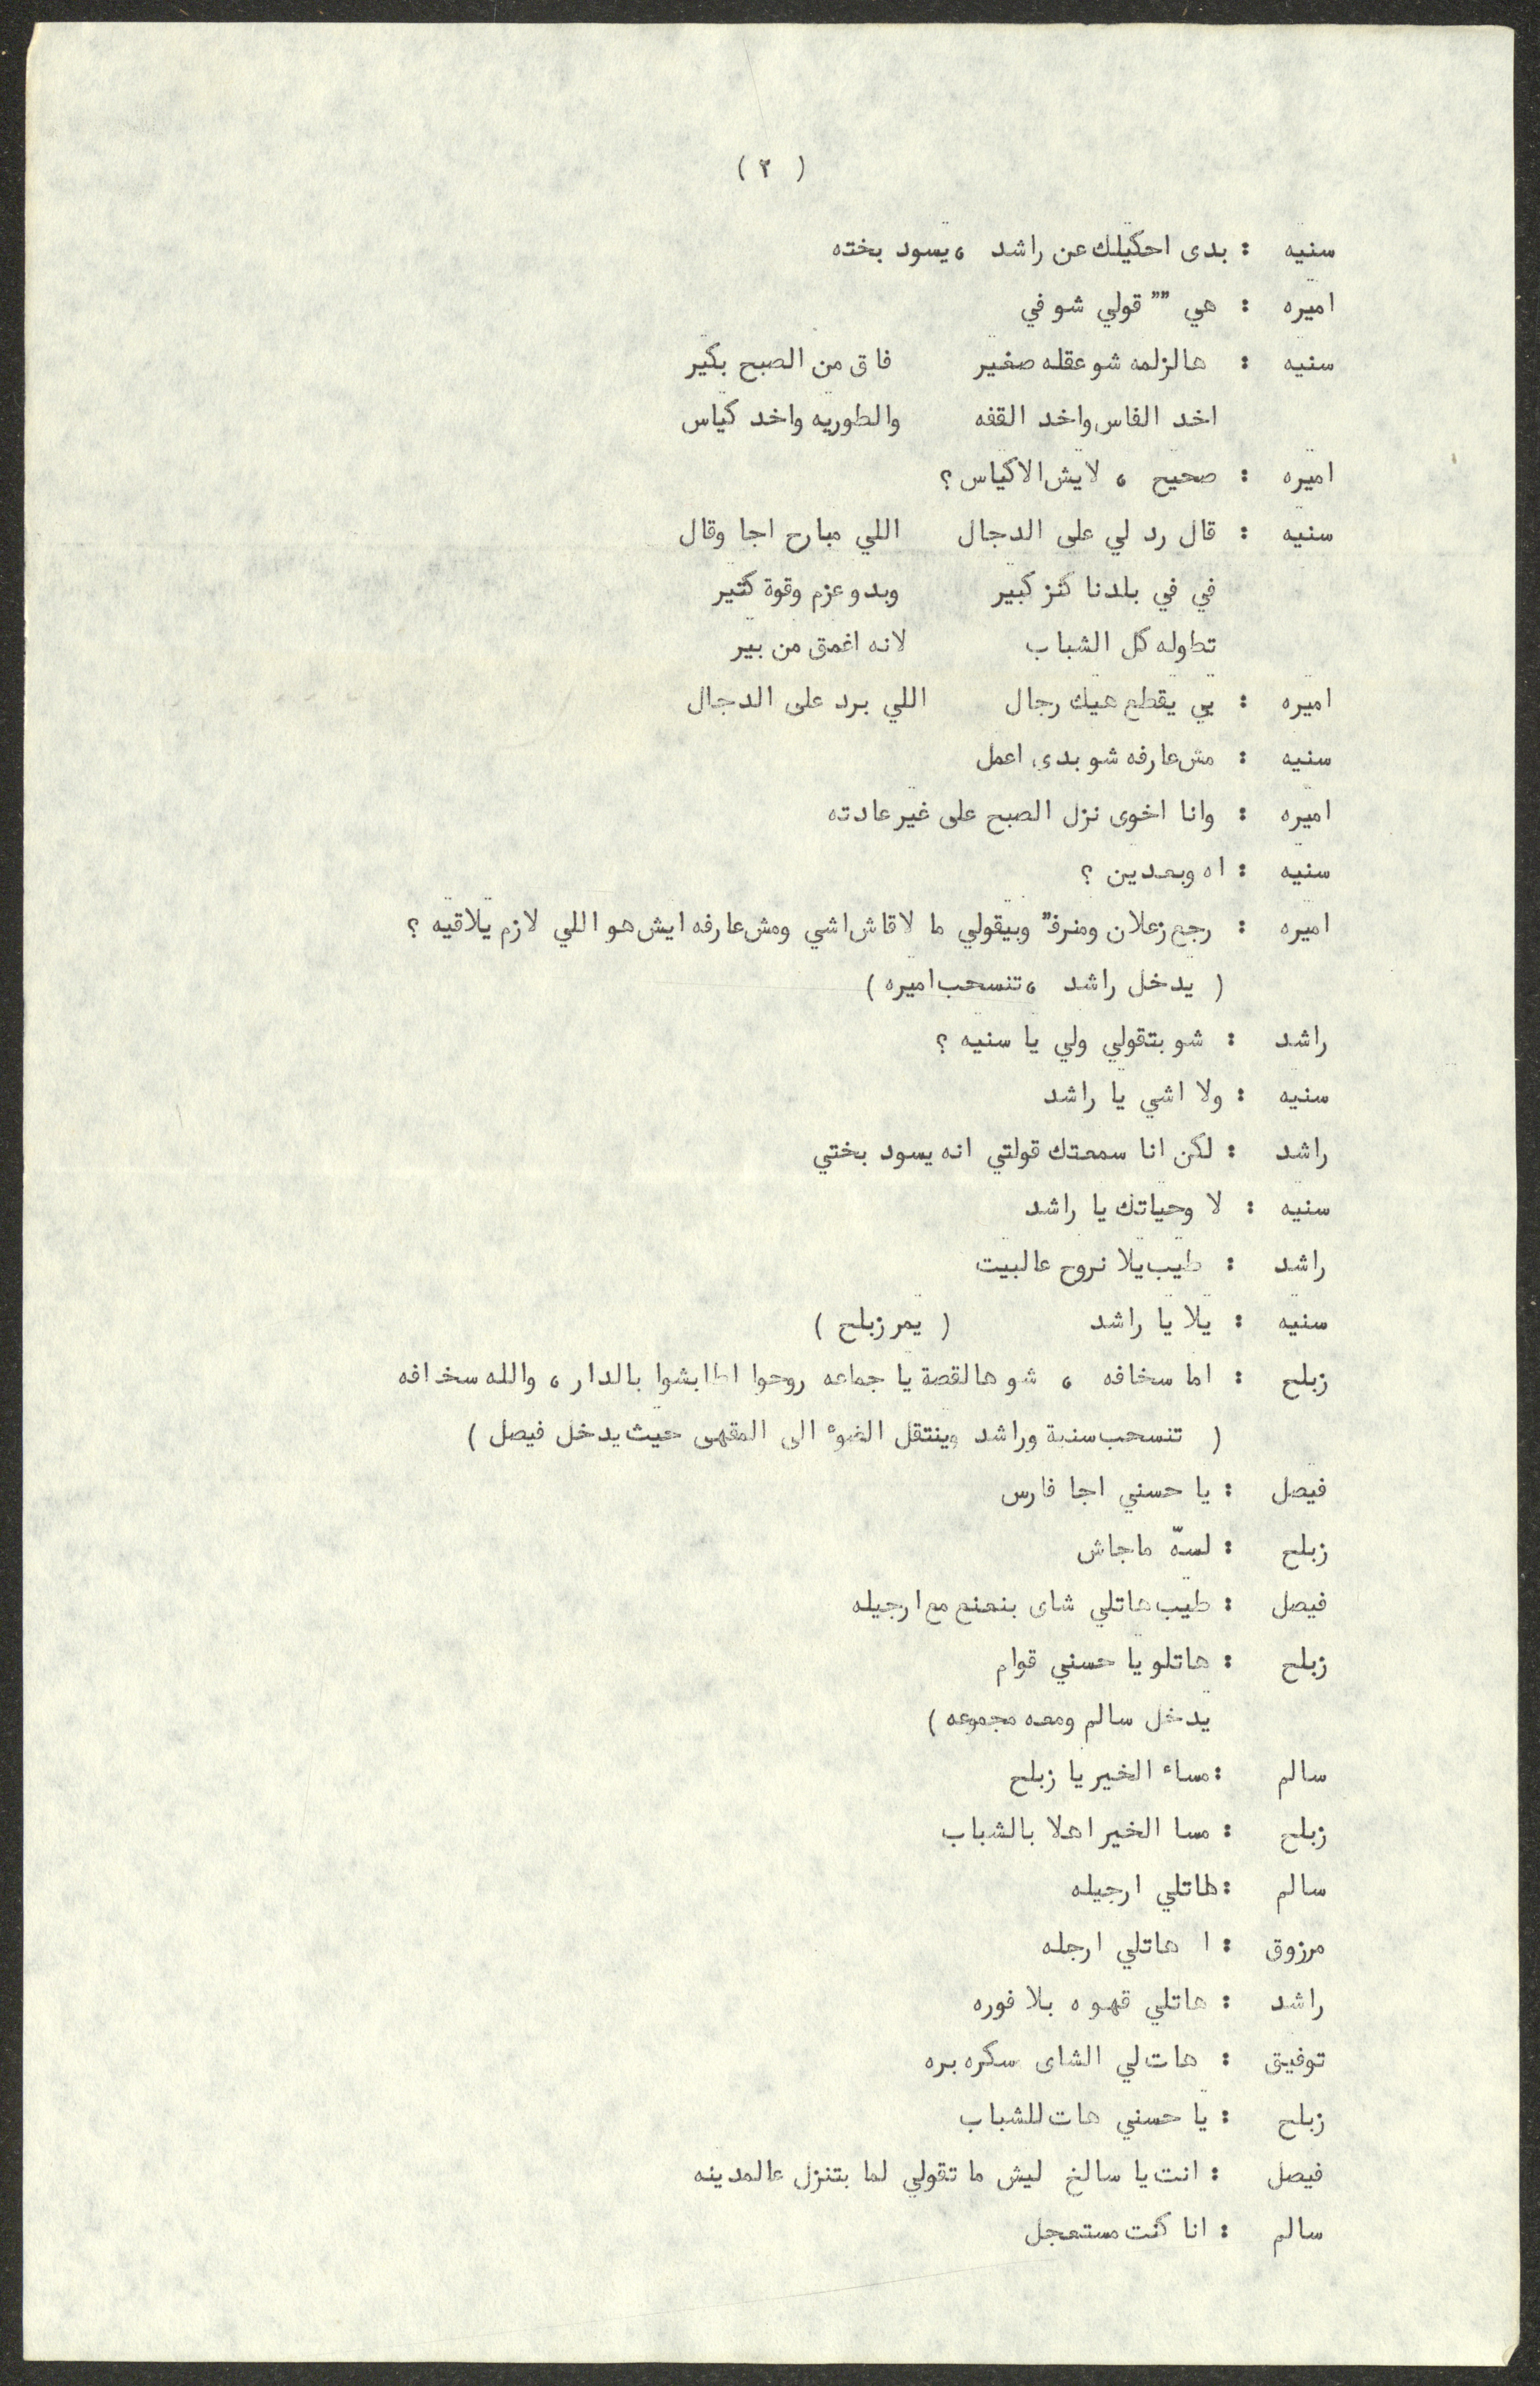 ( ٢ )
سنيه : بدى احكيلك عن راشد ، يسود بخته
اميره : هي "" قولي شو في
سنيه : هالزلمه شو عقله صغير فاق من الصبح بكير
اخد الفاس واخد القفه والطوريه واخد كياس
اميره : صحيح ، لايش الاكياس ؟
سنيه : قال رد لي على الدجال اللي مبارح اجا وقال
في في بلدنا كنز كبير وبدو عزم وقوة كتير
تطوله كل الشباب لانه اغمق من بير
اميره : يي يقطع هيك رجال اللي برد على الدجال
سنيه : مش عارفه شو بدى اعمل
اميره : وانا اخوى نزل الصبح على غير عادته
سنيه : اه وبعدين ؟
اميره : رجع زعلان ومنرفز" وبيقولي ما لاقاش اشي ومش عارفه ايش هو اللي لازم يلاقيه ؟
( يدخل راشد ، تنسحب اميره )
راشد : شو بتقولي ولي يا سنيه ؟
سنيه : ولا اشي يا راشد
راشد : لكن انا سمعتك قولتي انه يسود بختي
سنيه : لا وحياتك يا راشد
راشد : طيب يلا نروح عالبيت
سنيه : يلا يا راشد ( يمر زبلح )
زبلح : اما سخافه ، شو هالقصة يا جماعه روحوا اطابشوا بالدار ، والله سخافه
( تنسحب سنية وراشد وينتقل الضوء الى المقهى حيث يدخل فيصل )
فيصل : يا حسني اجا فارس
زبلح : لسهّ ماجاش
فيصل : طيب هاتلي شاى بنعنع مع ارجيله
زبلح : هاتلو يا حسني قوام
يدخل سالم ومعه مجموعه )
سالم : مساء الخير يا زبلح
زبلح : مسا الخير اهلا بالشباب
سالم : هاتلي ارجيله
مرزوق : ا هاتلي ارجله
راشد : هاتلي قهوه بلا فوره
توفيق : هات لي الشاى سكره بره
زبلح : يا حسني هات للشباب
فيصل : انت يا سالخ ليش ما تقولي لما بتنزل عالمدينه
سالم : انا كنت مستعجل